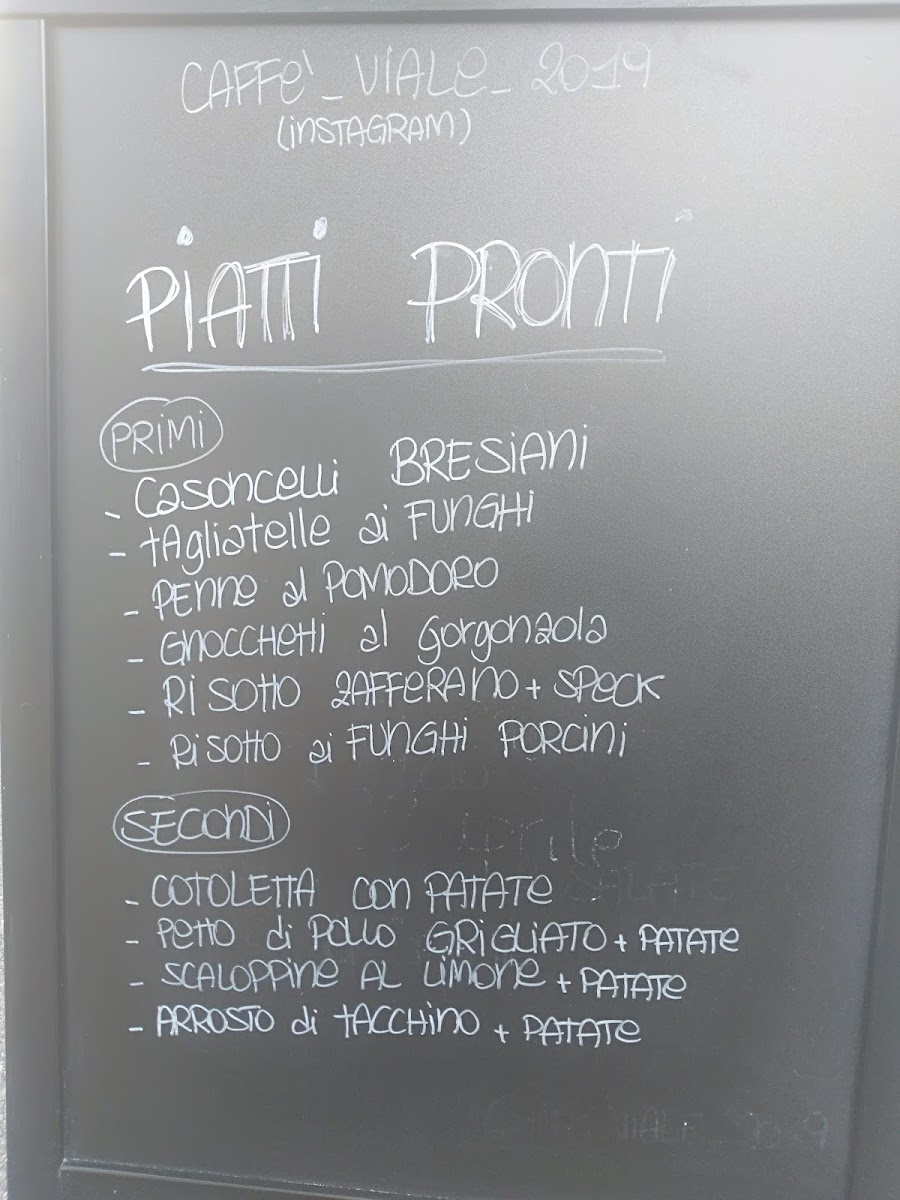 CAFFe'_ViALe_2019
(inSTAGRAM)
PiATTi PRONTi
PRiMi
- Casoncelli BRESiANi
- tAgliatelle ai FUNGHI
- PENNe al POMODORO
- GNOCCHETTi al gorgonzola
- RiSOTTO ZAFFERANO + SPeCK
- RiSOTTO ai FUNGHi PORCiNi
SECONDi
- COTOLETTA con PATATE
- Petto di POLLO GRiGLiATO + PATATe
- SCALOPPiNe AL LiMONE + PATATe
- ARROSTO di TACCHiNO + PATATe